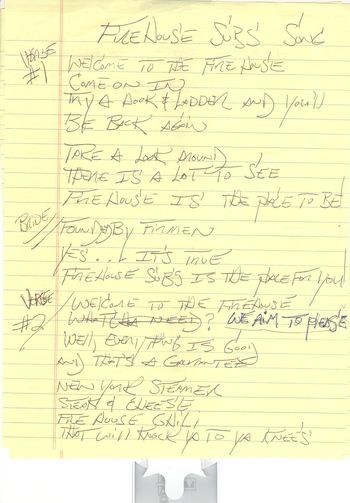 FIREHOUSE SUBS' SONG
VERSE #1
WELCOME TO THE FIREHOUSE
COME ON IN
TRY A HOOK & LADDER AND YOU'LL
BE BACK AGAIN
TAKE A LOOK AROUND
THERE IS A LOT TO SEE
FIREHOUSE IS THE PLACE TO BE
BRIDGE
FOUNDED BY FIREMEN
YES... IT'S TRUE
FIREHOUSE SUBS IS THE PLACE FOR YOU!
VERSE #2
WELCOME TO THE FIREHOUSE
WHATCHA NEED? WE AIM TO PLEASE
WELL, EVERYTHING IS GOOD
AND THAT'S A GUARANTEE
NEW YORK STEAMER
STEAK & CHEESE
FIREHOUSE CHILI
THAT WILL KNOCK YA TO YA KNEES